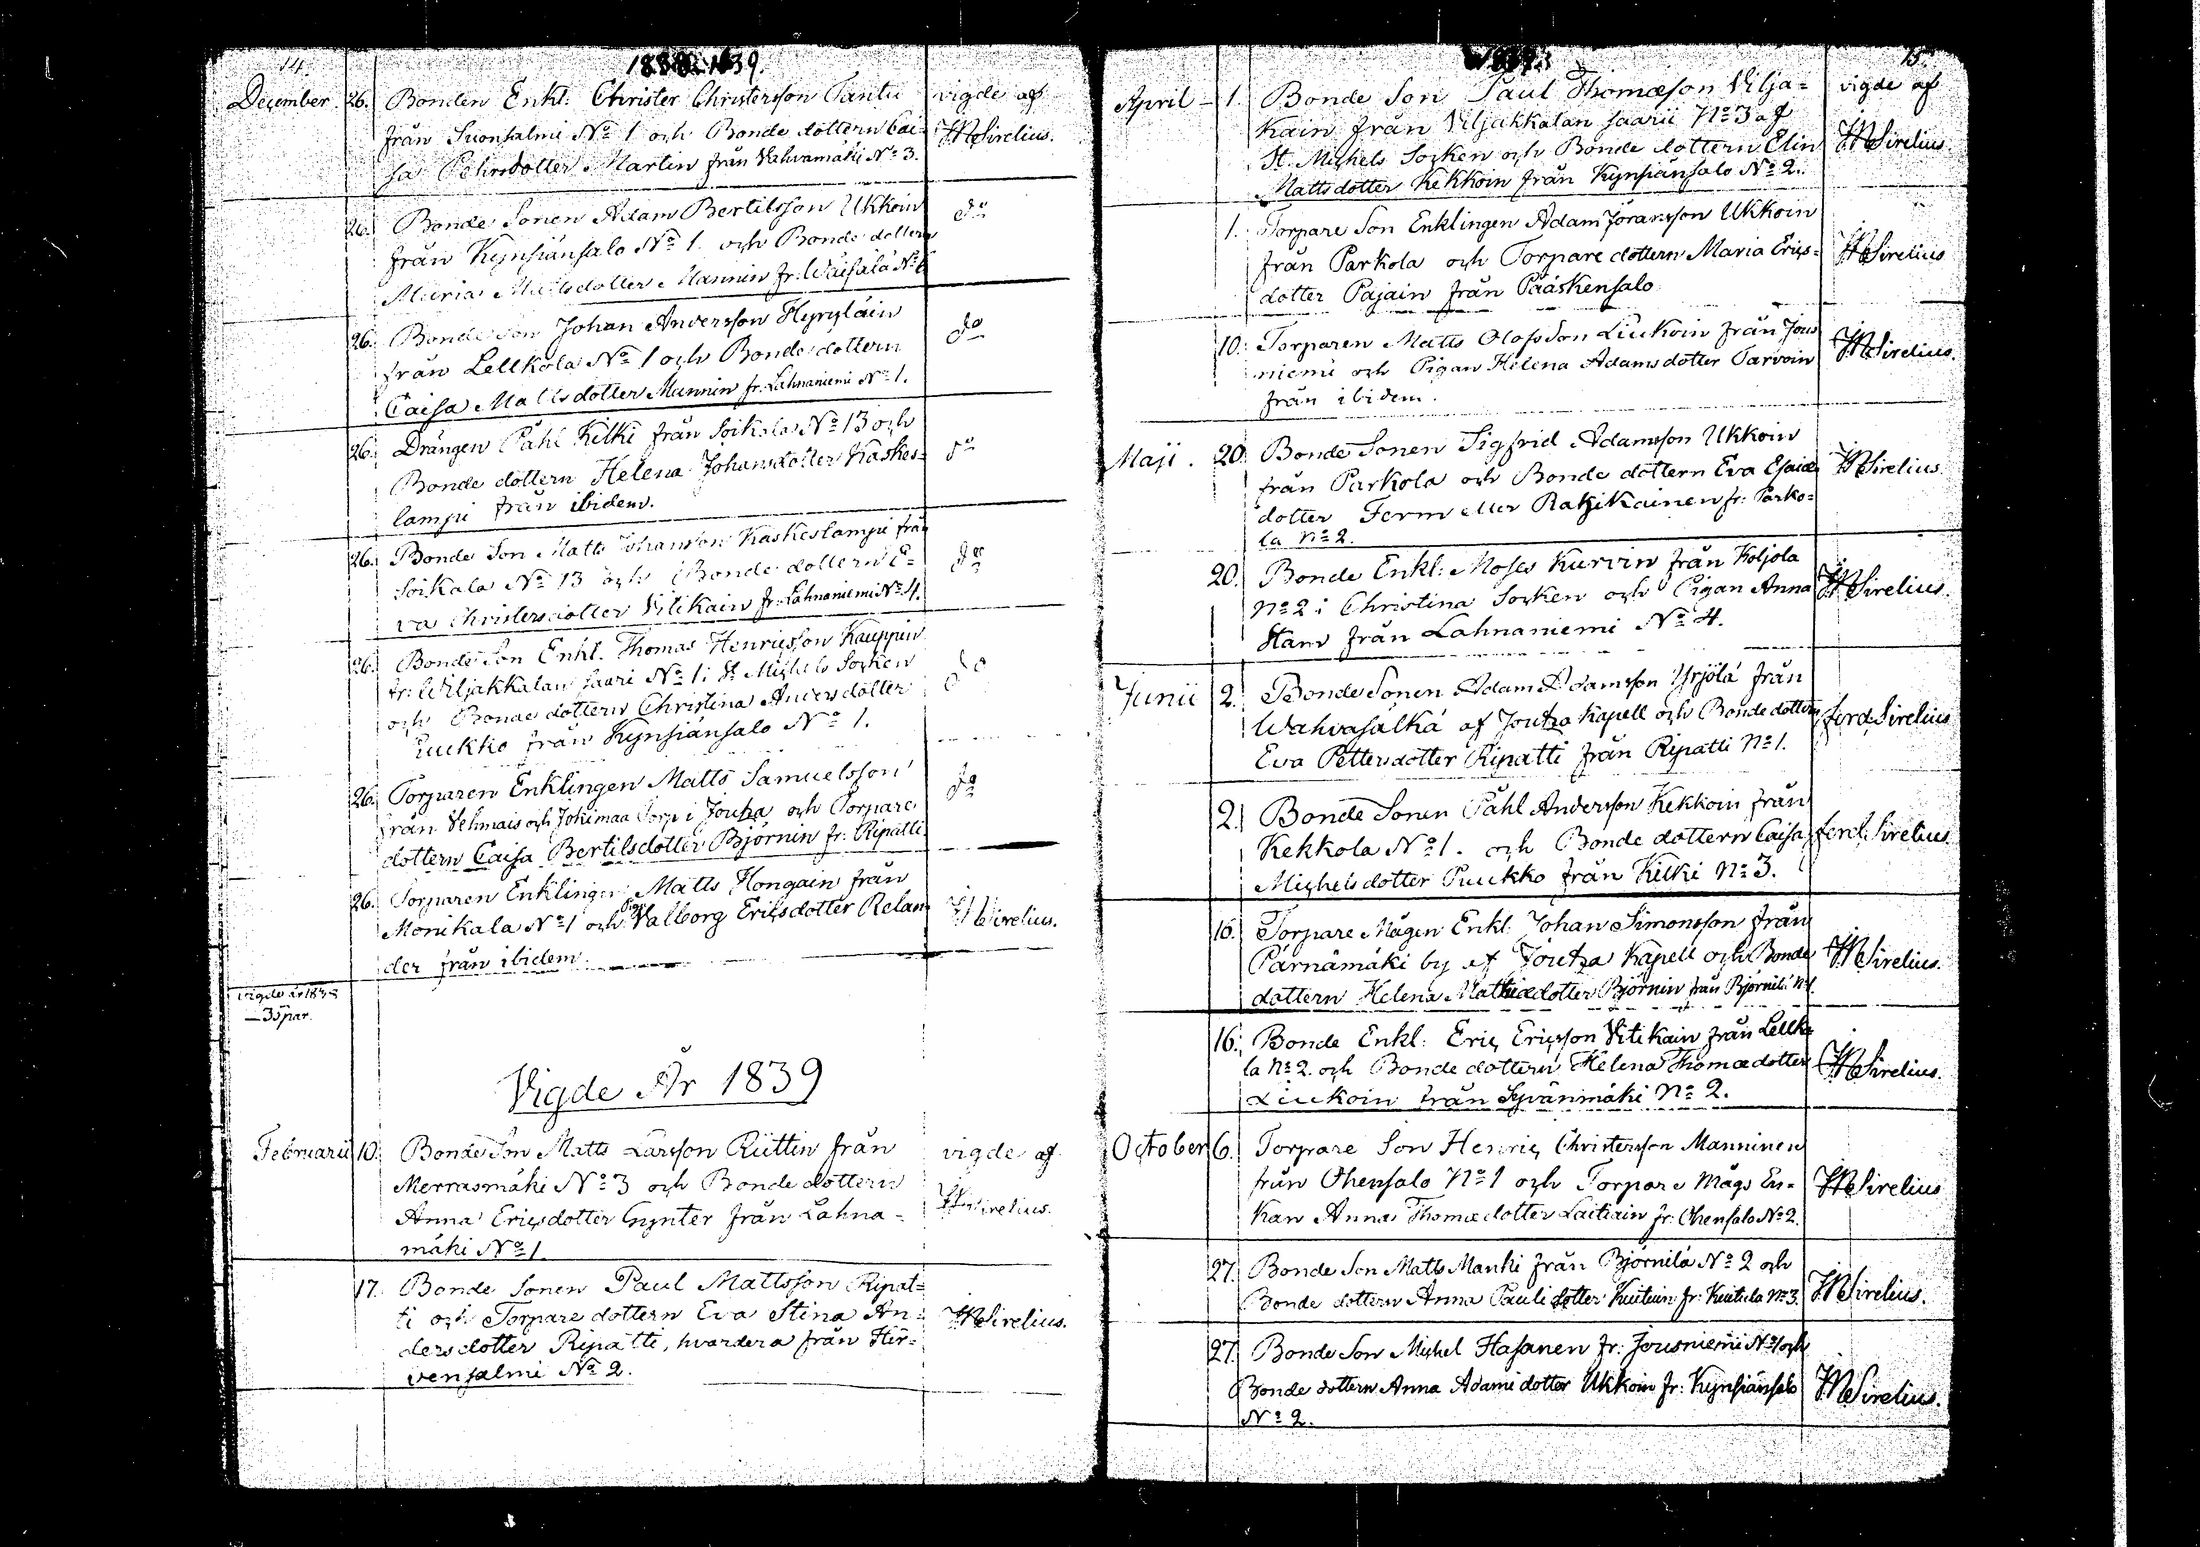 14.
1838. 1839.
December 26. Bonden Enkl. Christer Christersson Tantu vigde af
från Suonsalmi No 1 och Bonde dottern Cai- Sirelius.
sa Pehrsdotter Martin från Vahvamäki No 3.
26. Bonde Sonen Adam Bertilsson Ukkoin do
från Kynsiänsalo No 1. och Bonde dottern
Maria Mattsdotter Mannin fr: Waisala No 6
26. Bonde Son Johan Andersson Hyryläin do
från Lellkola No 1 och Bonde dottern
Caisa Mattsdotter Mannin fr: Lahnaniemi No 1.
26. Drängen Påhl Kilki från Soikola No 13 och do
Bonde dottern Helena Johansdotter Kaskes-
lampi från ibidem.
26. Bonde Son Matts Johansson Kaskeslampi från do
Soikala No 13 och Bonde dottern E-
va Christersdotter Vitikain fr: Lahnaniemi No 4.
26. Bonde Son Enkl. Thomas Henricsson Kauppin do
fr: Wiljakkalan saari No 1 i St Michels Socken
och Bonde dottern Christina Andersdotter
Puukko från Kynsiänsalo No 1.
26. Torparen Enklingen Matts Samuelsson do
från Vehmais och Jokimaa Torp i Joutza och Torpare
dottern Caisa Bertilsdotter Björnin fr: Ripatti
26. Torparen Enklingen Matts Hongain från
Monikala No 1 och Pigan Valborg Ericsdotter Relan- Sirelius.
der från ibidem.
Vigde år 1838
— 35 par.
Vigde År 1839
Februarii 10. Bonde Son Matts Larsson Riittin från vigde af
Merrasmäki No 3 och Bonde dottern
Anna Ericsdotter Gynter från Lahna- Sirelius.
mäki No 1.
17. Bonde Sonen Paul Mattsson Ripat-
ti och Torpare dottern Eva Stina An- Sirelius.
dersdotter Ripatti, hvardera från Hir-
vensalmi No 2.
15.
April – 1. Bonde Son Paul Thomæson Vilja- vigde af
kain från Viljakkalan saarii No 3 af
St. Michels Socken och Bonde dottern Elin Sirelius.
Mattsdotter Kekkoin från Kynsiänsalo No 2.
1. Torpare Son Enklingen Adam Göransson Ukkoin
från Parkola och Torpare dottern Maria Erics- Sirelius
dotter Pajain från Pääskensalo
10. Torparen Matts Olofsson Liukoin från Jous
niemi och Pigan Helena Adamsdotter Tarvoin Sirelius.
från ibidem.
Maji. 20. Bonde Sonen Sigfrid Adamsson Ukkoin Sirelius
från Parkola och Bonde dottern Eva Esaiæ
dotter Ferm eller Räihikainen fr: Parko-
la No 2.
20. Bonde Enkl: Moses Kurvin från Koljola
No 2 i Christina Socken och Pigan Anna Sirelius.
Harv från Lahnaniemi No 4.
Junii 2. Bonde Sonen Adam Adamsson Yrjölä från
Wahvasälkä af Joutza Kapell och Bonde dottern Ferd. Sirelius
Eva Pettersdotter Ripatti från Ripatti No 1.
2. Bonde Sonen Påhl Andersson Kekkoin från
Kekkola No 1. och Bonde dottern Caisa Ferd. Sirelius.
Michelsdotter Puukko från Kilki No 3.
16. Torpare Mågen Enkl. Johan Simonsson från
Pärnämäki by af Joutza Kapell och Bonde Sirelius.
dottern Helena Mathiædotter Björnin från Björnilä No 1.
16. Bonde Enkl: Eric Ericsson Vitikain från Lellko
la No 2. och Bonde dottern Helena Thomædotter Sirelius.
Liukoin från Syvänmäki No 2.
October 6. Torpare Son Henric Christersson Manninen
från Ohensalo No 1 och Torpare Mågs En- Sirelius
kan Anna Thomædotter Laitiain fr: Ohensalo No 2.
27. Bonde Son Matts Manki från Björnilä No 2 och
Bonde dottern Anna Pauli dotter Kuitiin fr: Kuitula No 3. Sirelius.
27. Bonde Son Michel Hasanen fr: Jousniemi No 1 och
Bonde dottern Anna Adami dotter Ukkoin fr: Kynsiänsalo Sirelius.
No 2.